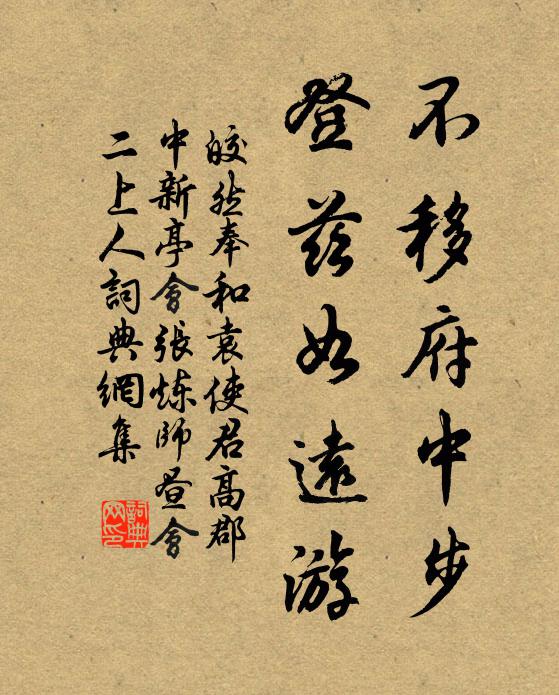 不移府中步
登兹如遠游
皎然奉和袁使君高郡
中新亭會張煉師晝會
二上人詞典網集
詞典网印